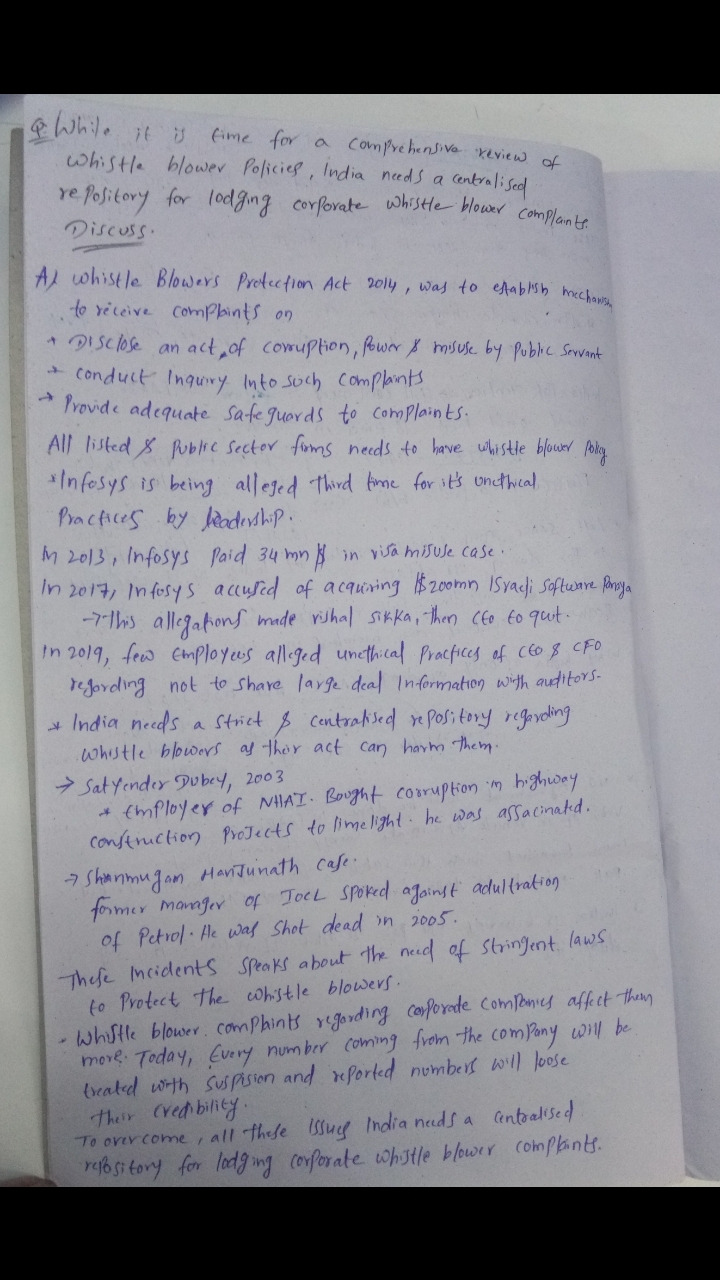 Q While it is time for a comprehensive review of
whistle blower Policies, India needs a centralised
repository for lodging corporate whistle blower complaints.
Discuss.
A) Whistle Blowers Protection Act 2014, was to establish mechanism
to receive complaints on
* Disclose an act of corruption, Power & misuse by Public Servant
* conduct Inquiry Into such complaints
→ Provide adequate safeguards to complaints.
All listed & Public sector firms needs to have whistle blower Policy
* Infosys is being alleged third time for it's unethical
Practices by leadership.
In 2013, Infosys Paid 34 mn $ in visa misuse case.
In 2017, Infosys accused of acquiring $200mn Israeli software Panaya
→ This allegations made vishal sikka, then CEO to quit.
In 2019, few Employees alleged unethical Practices of CEO & CFO
regarding not to share large deal Information with auditors.
* India needs a strict & centralised repository regarding
whistle blowers as their act can harm them.
→ Satyender Dubey, 2003
* Employer of NHAI. Bought corruption in highway
construction Projects to limelight. he was assacinated.
→ Shanmugam Manjunath case.
former manager of IOCL spoked against adultration
of Petrol. He was shot dead in 2005.
These Incidents speaks about the need of stringent laws
to Protect the whistle blowers.
- Whistle blower complaints regarding corporate companies affect them
more. Today, Every number coming from the company will be
treated with suspision and reported numbers will loose
their credibility.
To overcome, all these issues India needs a centralised
repository for lodging corporate whistle blower complaints.